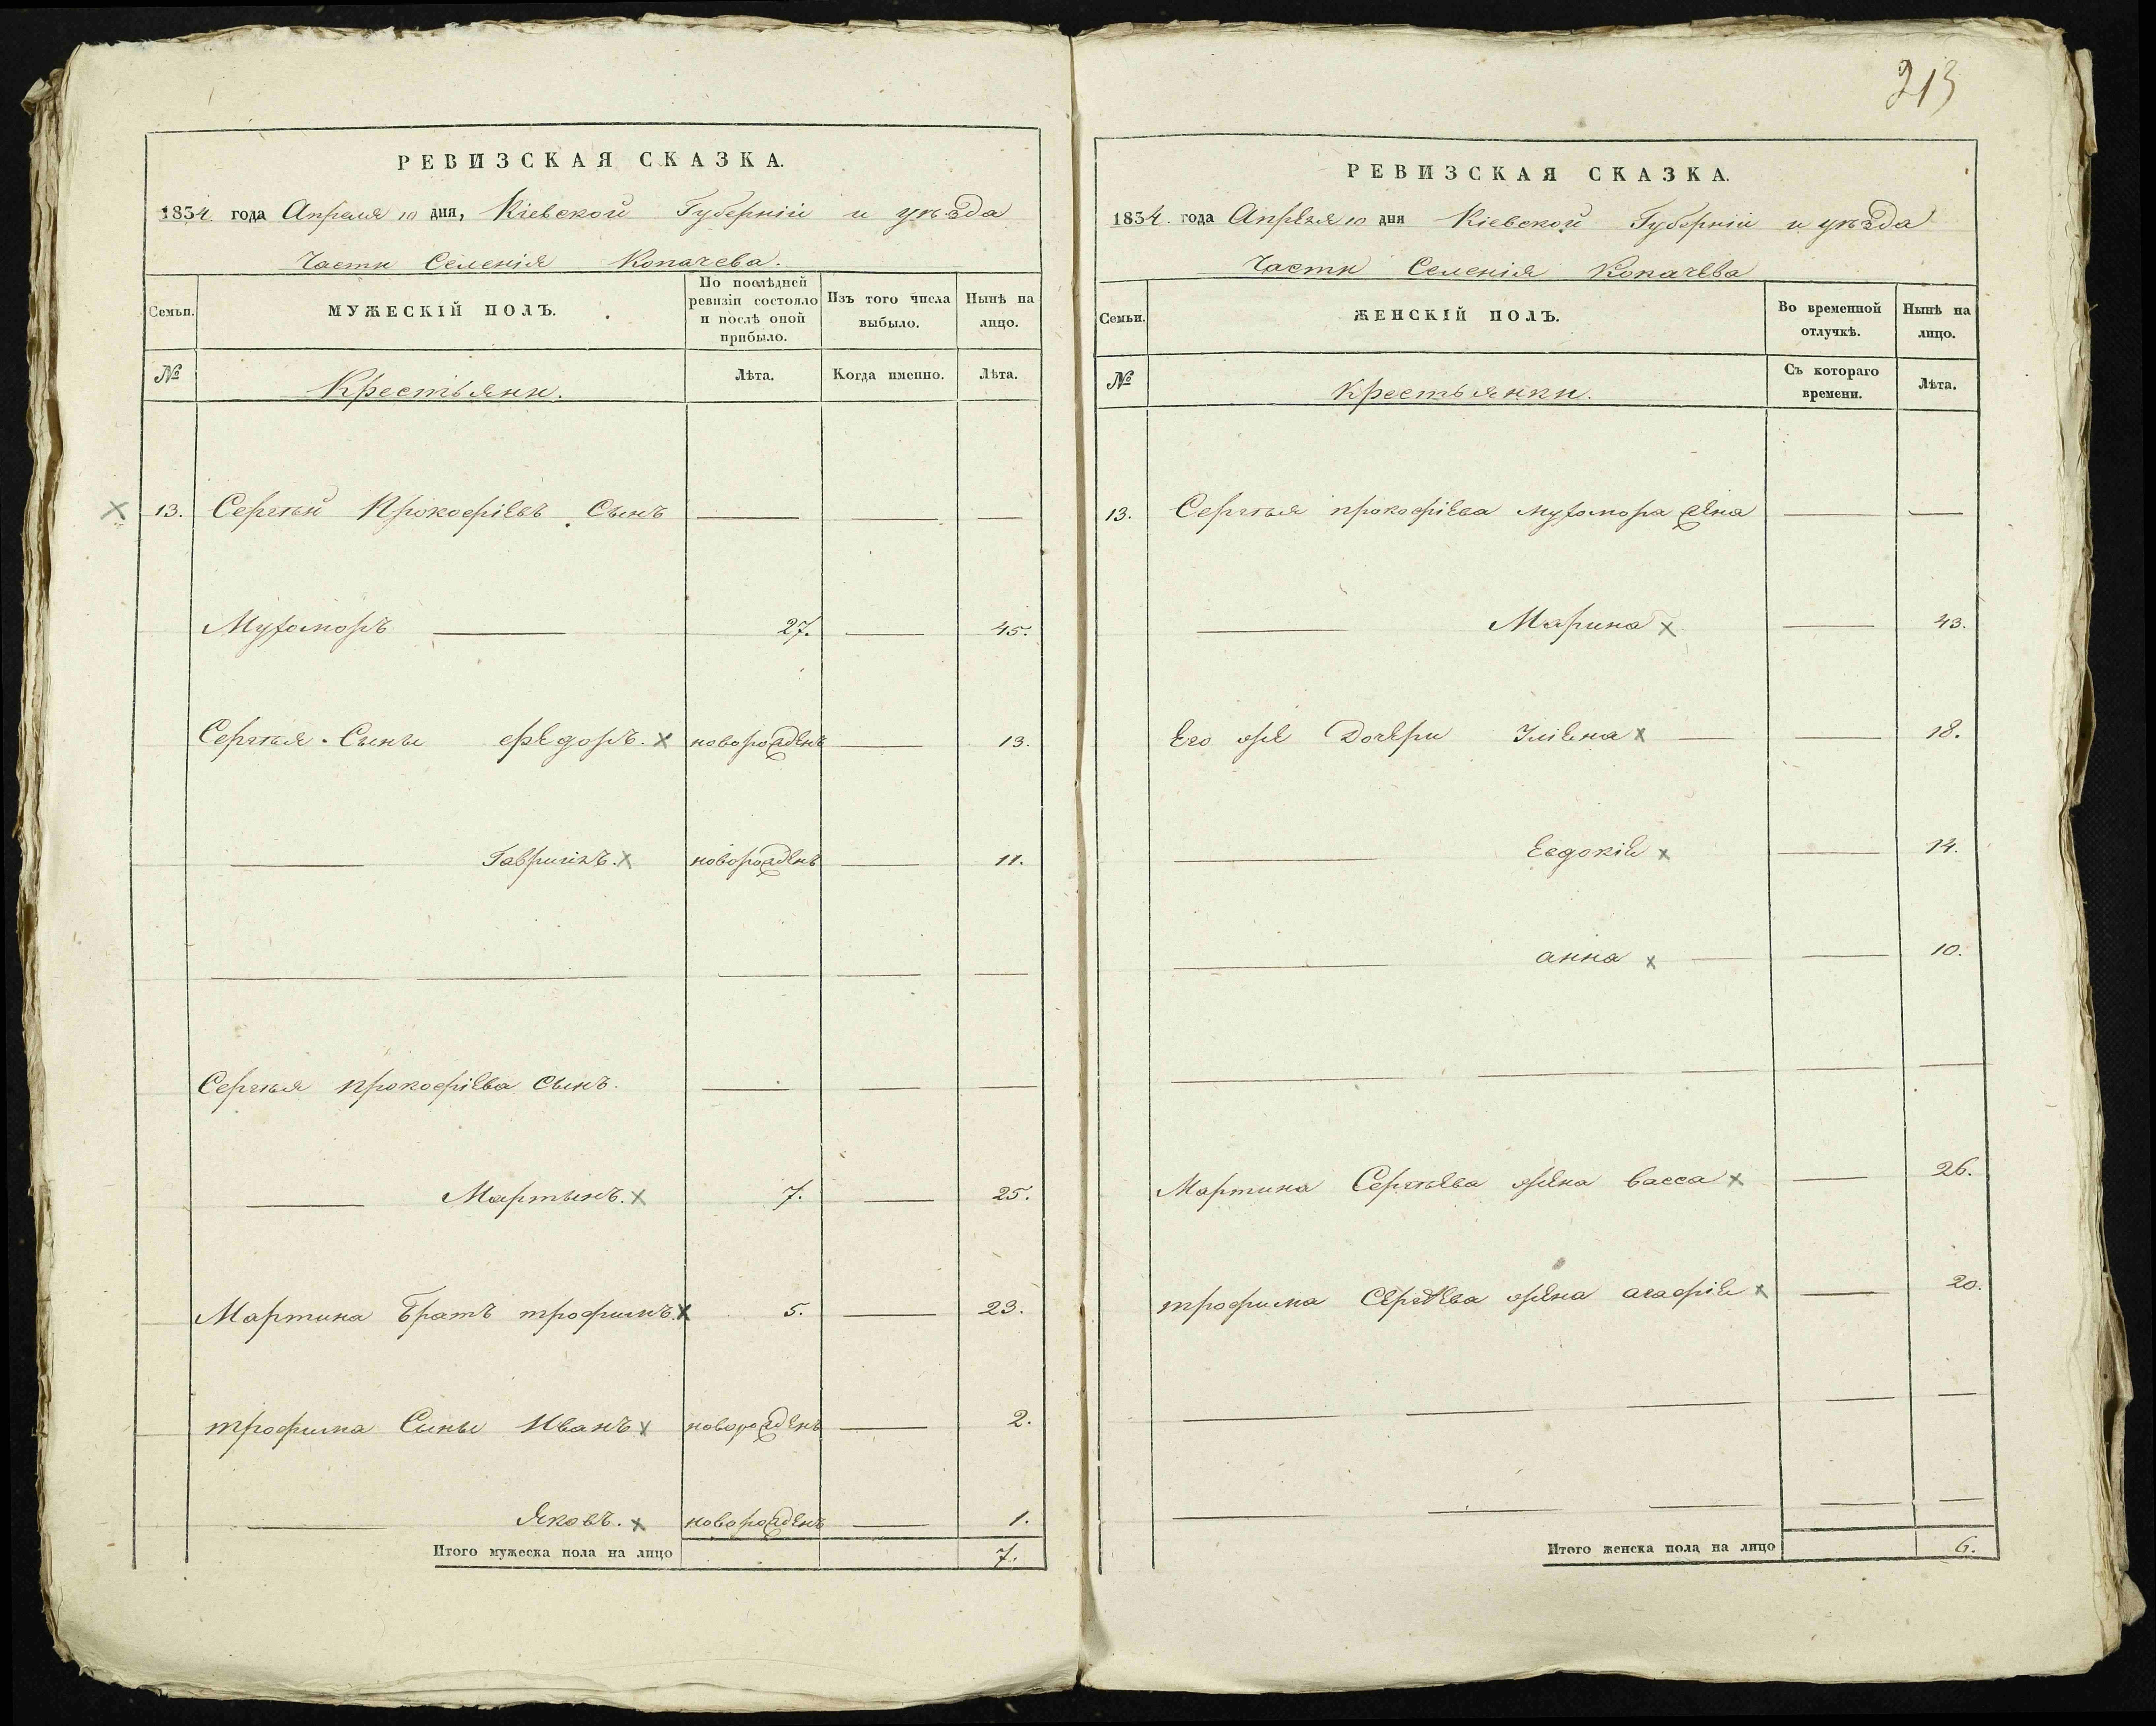 213
РЕВИЗСКАЯ СКАЗКА.
1834 года Апреля 10 дня, Кіевской Губерніи и уѣзда
Части Селенія Копачева.
Семьи.
МУЖЕСКІЙ ПОЛЪ.
По послѣдней ревизіи состояло и послѣ оной прибыло.
Изъ того числа выбыло.
Нынѣ на лицо.
№
Крестьяни.
Лѣта.
Когда именно.
Лѣта.
13. Сергѣй Прокофіевъ Сынъ
Мухоморъ 27. 45.
Сергѣя Сыны Федоръ. новорожденъ 13.
Гавриилъ. новорожденъ 11.
Сергѣя Прокофіева Сынъ.
Мартынъ. 7. 25.
Мартина Братъ трофимъ. 5. 23.
трофима Сыны Иванъ новорожденъ 2.
Яковъ. новорожденъ 1.
Итого мужеска пола на лицо 7.
РЕВИЗСКАЯ СКАЗКА.
1834. года Апреля 10 дня Кіевской Губерніи и уѣзда
Части Селенія Копачева
Семьи.
ЖЕНСКІЙ ПОЛЪ.
Во временной отлучкѣ.
Нынѣ на лицо.
№
Крестьянки.
Съ котораго времени.
Лѣта.
13. Сергѣя прокофіева мухомора жена
Марина 43.
Его же Дочери Уліена 18.
Евдокіе 14.
анна 10.
Мартина Сергѣева жена васса 26.
трофима Сергѣева жена агафіе 20.
Итого женска пола на лицо 6.